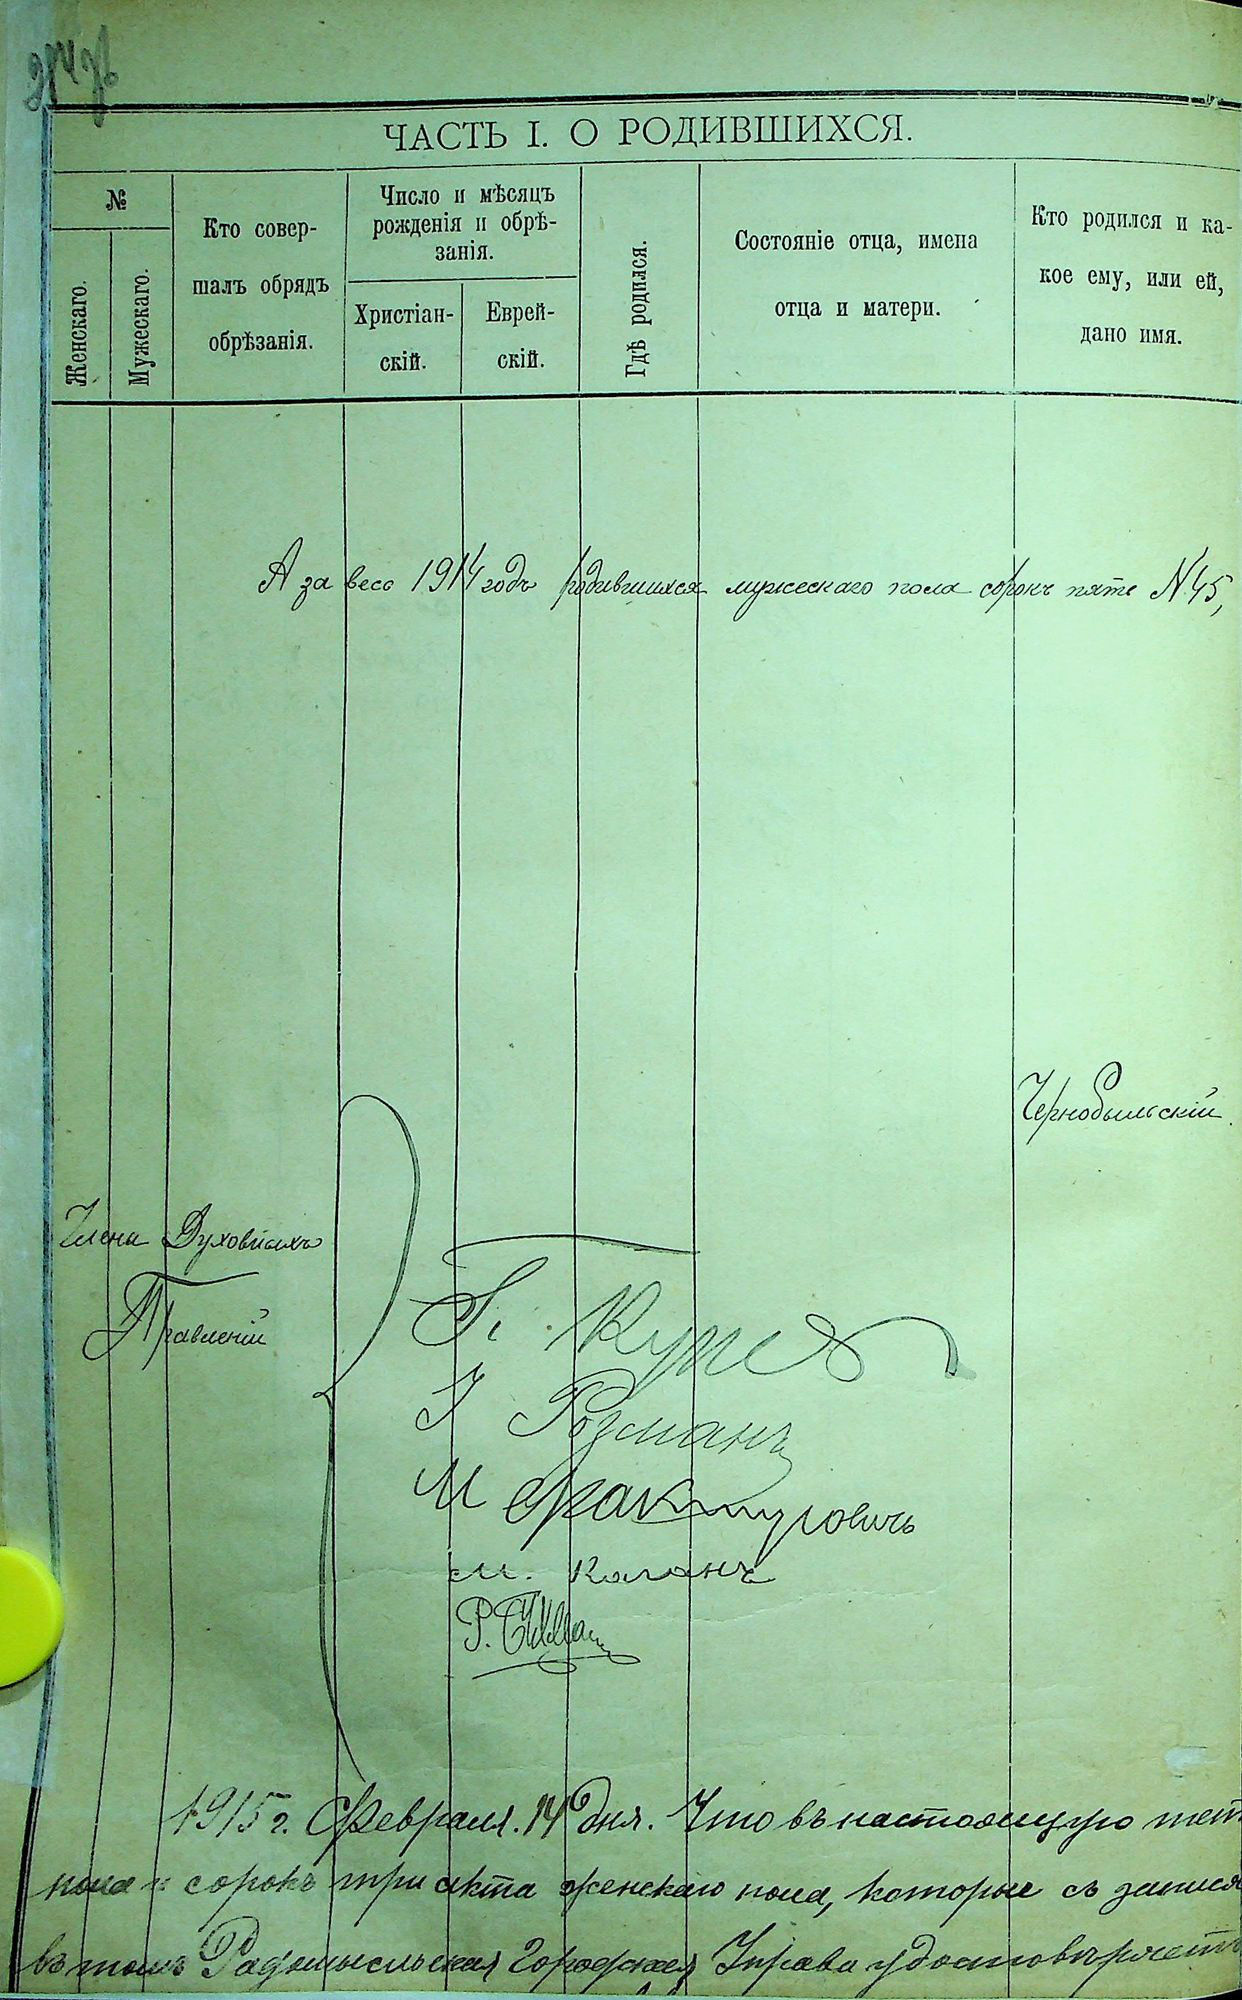 ЧАСТЬ I. О РОДИВШИХСЯ.
№
Женскаго.
Мужескаго.
Кто совер-
шалъ обрядъ
обрѣзанія.
Число и мѣсяцъ
рожденія и обрѣ-
занія.
Христіан-
скій.
Еврей-
скій.
Гдѣ родился.
Состояніе отца, имена
отца и матери.
Кто родился и ка-
кое ему, или ей,
дано имя.
А за весь 1914 годъ родившихся мужескаго пола сорокъ пять N 45,
Чернобыльскій
Члены Духовныхъ
Правленій
І Розманъ
М
М. Каганъ
Р.
1915 г. Февраля 14 дня. Что въ настоящую тет
пола и сорокъ три акта женскаго пола, которые съ записа
въ томъ Радомысльская Городская Управа удостовѣряетъ